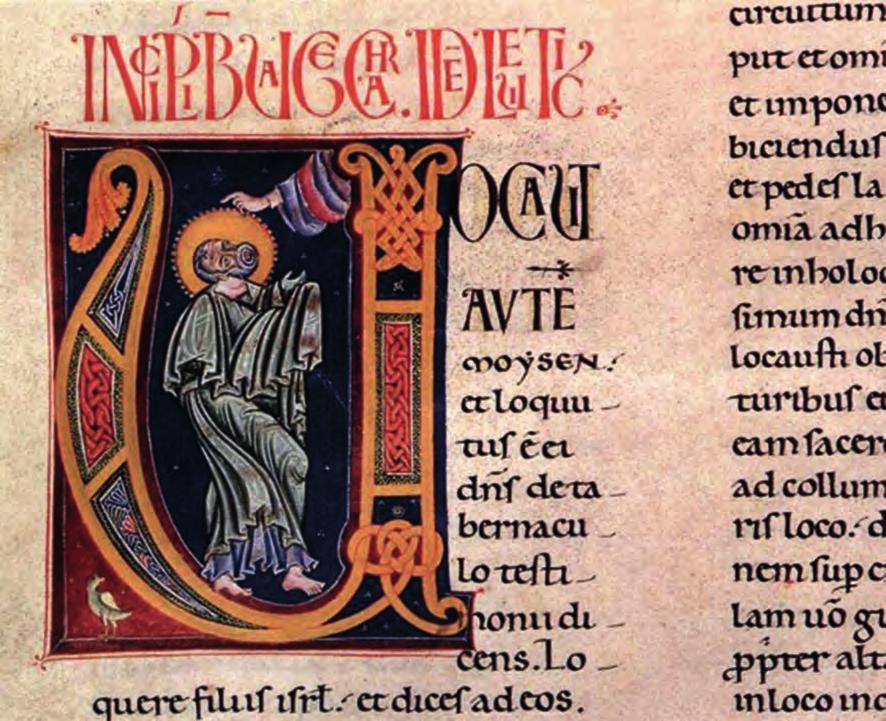 INCIPIT LIB̄ UAIECHRA. ID Ē LEUITIC
UOCAUIT
AUTĒ
MOYSEN.
et loquu
tus ē ei
dn̄s de ta
bernacu
lo testi
monii di
cens. Lo
quere filiis isrł. et dices ad eos.
circuitum
put et omi
et impone
biciendus
et pedes la
omiā adh
re in holoc
simum dn̄
locausti ob
turibus et
eam sacer
ad collum
ris loco. d
nem sup c
lam uō gu
ppter alt
in loco in